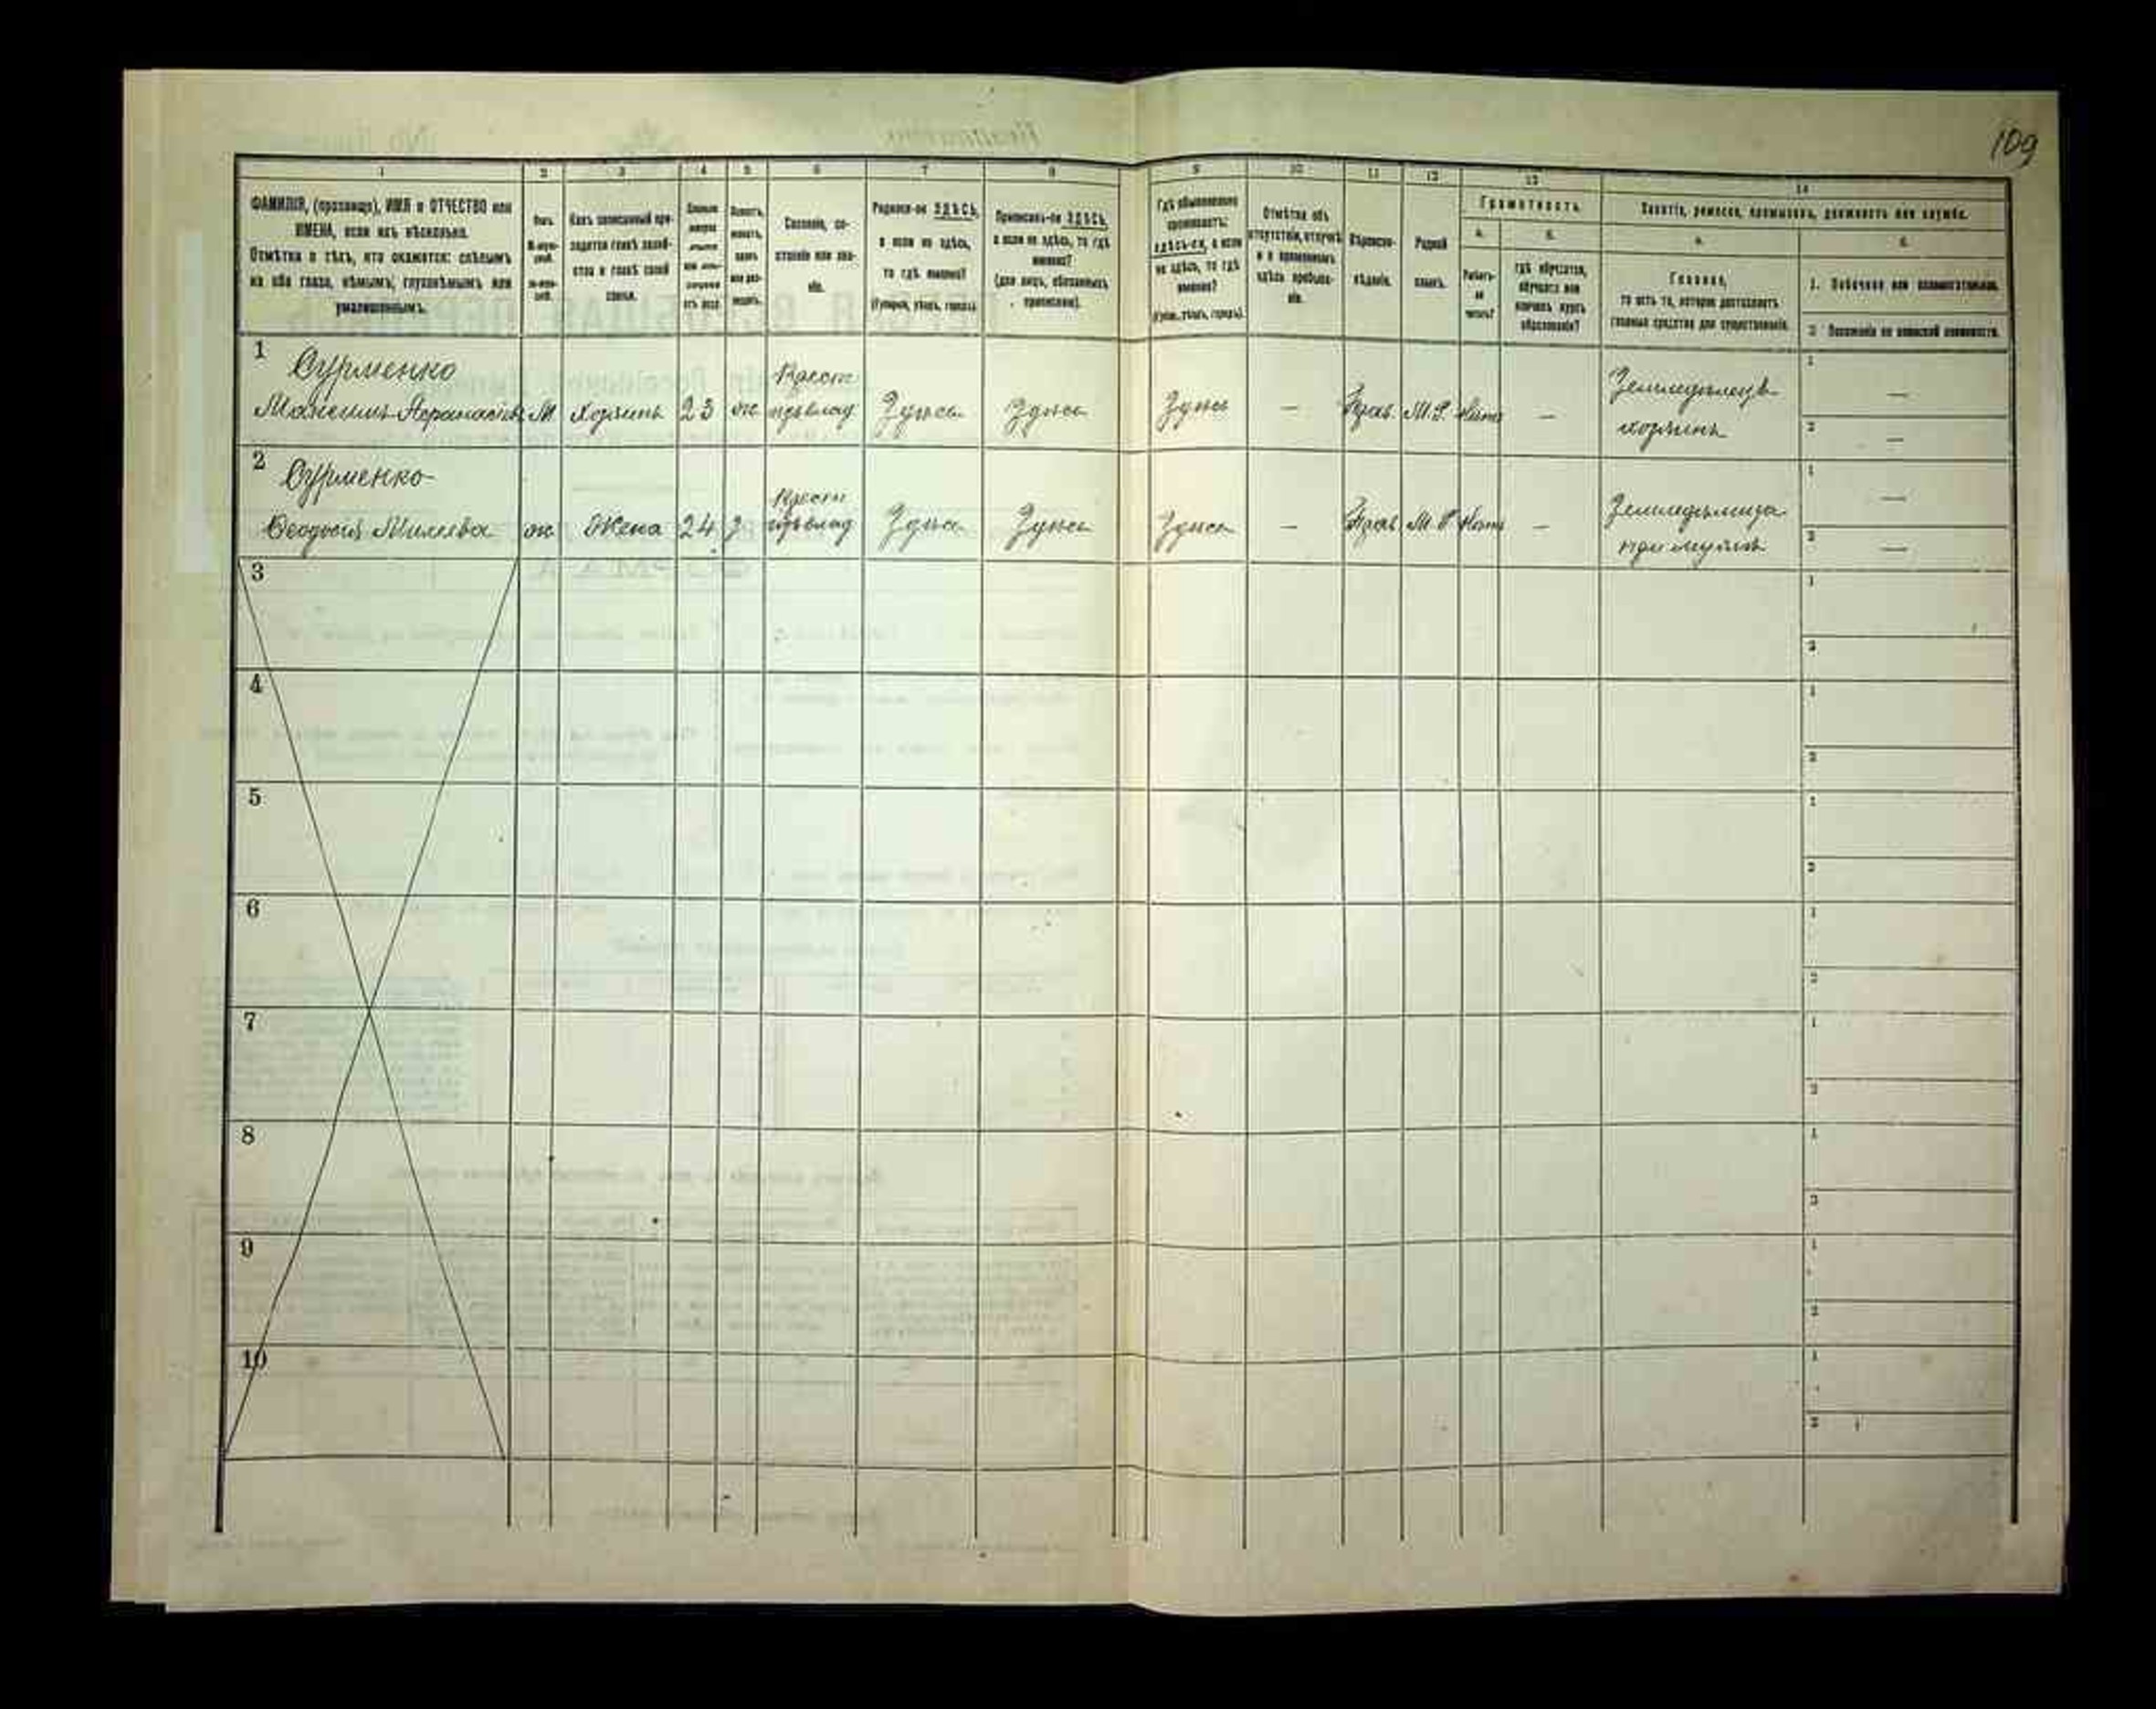 109
1 2 3 4 5 6 7 8 9 10 11 12 13 14
ФАМИЛІЯ, (прозвище), ИМЯ и ОТЧЕСТВО или
ИМЕНА, если ихъ нѣсколько.
Отмѣтка о тѣхъ, кто окажется: слѣпымъ
на оба глаза, нѣмымъ, глухонѣмымъ или
умалишеннымъ.
Полъ.
Какъ записанный при-
ходится главѣ хозяй-
ства и главѣ своей
семьи.
Сословіе, со-
стояніе или зва-
ніе.
Родился-ли ЗДѢСЬ,
а если не здѣсь,
то гдѣ именно?
(Губернія, уѣздъ, городъ).
Приписанъ-ли ЗДѢСЬ,
а если не здѣсь, то гдѣ
именно?
(для лицъ, обязанныхъ
припискою).
Гдѣ обыкновенно
проживаетъ:
здѣсь-ли, а если
не здѣсь, то гдѣ
именно?
(Губ., уѣздъ, городъ).
Отмѣтка объ
отсутствіи, отлучкѣ
и о временномъ
здѣсь пребыва-
ніи.
Вѣроиспо-
вѣданіе.
Родной
языкъ.
Грамотность.
а. б.
Умѣетъ-
ли
читать?
гдѣ обучается,
обучался или
кончилъ курсъ
образованія?
Занятіе, ремесло, промыселъ, должность или служба.
а. б.
Главное,
то есть то, которое доставляетъ
главныя средства для существованія.
1. Побочное или вспомогательное.
2. Положеніе по воинской повинности.
1 Сурменко Крест Земледѣлецъ 1 —
М хозяинъ 23 ж Здѣсь Здѣсь Здѣсь — Прав. М.Р. — хозяинъ 2 —
2 Сурменко Крест 1 —
ж Жена 24 з Здѣсь Здѣсь Здѣсь — Прав. М.Р. — при мужѣ 2 —
3 1
2
4 1
2
5 1
2
6 1
2
7 1
2
8 1
2
9 1
2
10 1
2